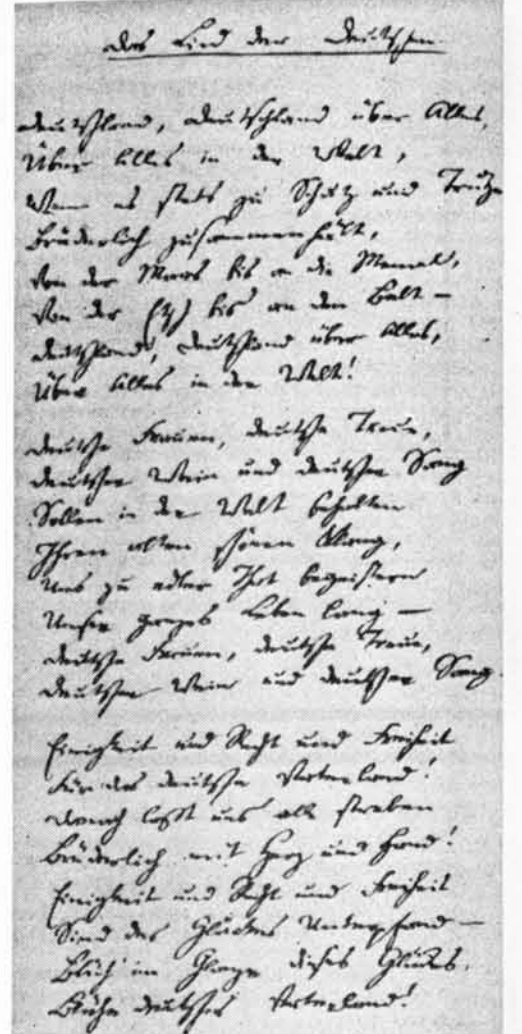 Das Lied der Deutschen
Deutschland, Deutschland über Alles,
Über Alles in der Welt,
Wenn es stets zu Schutz und Trutze
Brüderlich zusammenhält,
Von der Maas bis an die Memel,
Von der Etsch bis an den Belt –
Deutschland, Deutschland über Alles,
Über Alles in der Welt!
Deutsche Frauen, deutsche Treue,
Deutscher Wein und deutscher Sang
Sollen in der Welt behalten
Ihren alten schönen Klang,
Uns zu edler That begeistern
Unser ganzes Leben lang –
Deutsche Frauen, deutsche Treue,
Deutscher Wein und deutscher Sang.
Einigkeit und Recht und Freiheit
Für das deutsche Vaterland!
Danach laßt uns alle streben
Brüderlich mit Herz und Hand!
Einigkeit und Recht und Freiheit
Sind des Glückes Unterpfand –
Blüh' im Glanze dieses Glückes,
Blühe deutsches Vaterland!